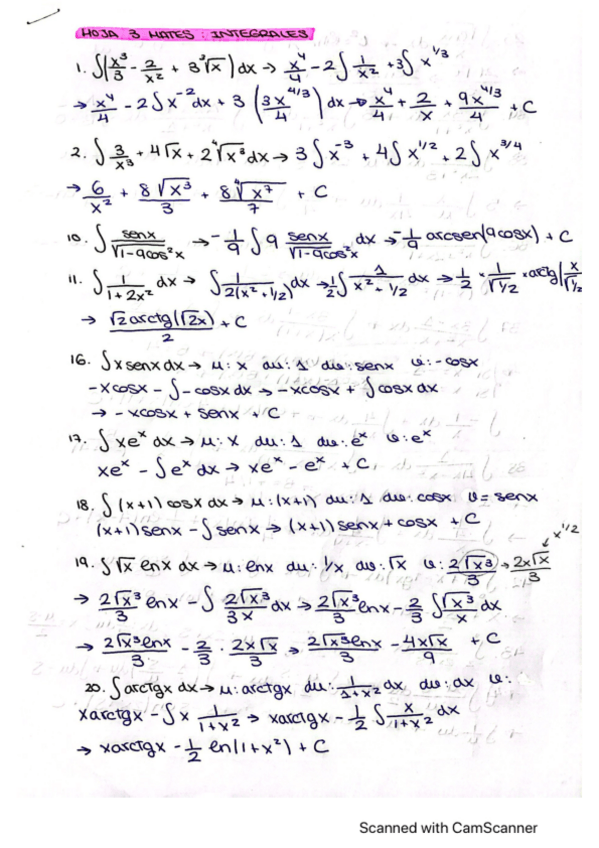 HOJA 3 MATES : INTEGRALES
1. ∫(x³/3 - 2/x² + 3∛x)dx → x⁴/4 - 2∫1/x² + 3∫x^1/3
→ x⁴/4 - 2∫x⁻²dx + 3(3x^4/3/4)dx → x⁴/4 + 2/x + 9x^4/3/4 + C
2. ∫3/x³ + 4√x + 2∜x³dx → 3∫x⁻³ + 4∫x^1/2 + 2∫x^3/4
→ 6/x² + 8√x³/3 + 8∜x⁷/7 + C
10. ∫senx/√1-9cos²x → -1/9∫9 senx/√1-9cos²x dx → -1/9 arcsen(9cosx) + C
11. ∫1/1+2x² dx → ∫1/2(x²+1/2)dx → 1/2∫1/x²+1/2 dx → 1/2 · 1/√1/2 · arctg(x/√1/2
→ √2arctg(√2x)/2 + C
16. ∫xsenxdx → u: x du: 1 dv: senx v: -cosx
-xcosx - ∫-cosxdx → -xcosx + ∫cosxdx
→ -xcosx + senx + C
17. ∫xeˣdx → u: x du: 1 dv: eˣ v: eˣ
xeˣ - ∫eˣdx → xeˣ - eˣ + C
18. ∫(x+1)cosxdx → u: (x+1) du: 1 dv: cosx v = senx
(x+1)senx - ∫senx → (x+1)senx + cosx + C
x^1/2
19. ∫√x lnxdx → u: lnx du: 1/x dv: √x v: 2√x³/3 → 2x√x/3
→ 2√x³/3 lnx - ∫2√x³/3x dx → 2√x³/3 lnx - 2/3∫√x³/x dx
→ 2√x³lnx/3 - 2/3 · 2x√x/3 → 2√x³lnx/3 - 4x√x/9 + C
20. ∫arctgxdx → u: arctgx du: 1/1+x² dx dv: dx v:
xarctgx - ∫x 1/1+x² → xarctgx - 1/2∫x/1+x² dx
→ xarctgx - 1/2 ln(1+x²) + C
Scanned with CamScanner